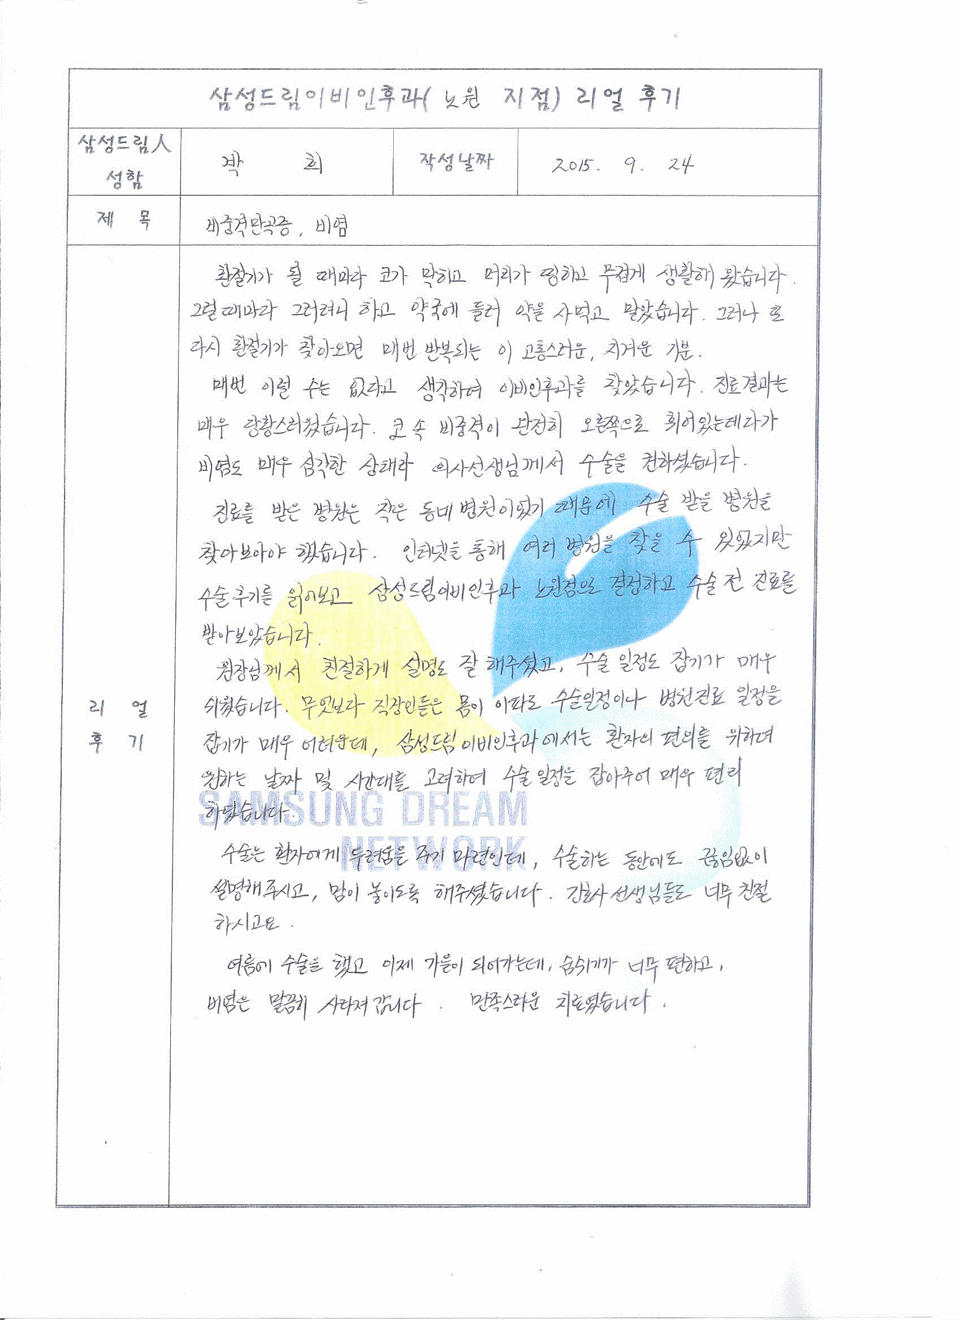 삼성드림이비인후과( 노원 지점) 리얼 후기
삼성드림人
성함
박 희
작성날짜
2015. 9. 24
제 목
비중격만곡증, 비염
환절기가 될 때마다 코가 막히고 머리가 띵하고 무겁게 생활해 왔습니다.
그럴때마다 그러려니 하고 약국에 들러 약을 사먹고 말았습니다. 그러나 또
다시 환절기가 찾아오면 매번 반복되는 이 고통스러운, 지겨운 기분.
매번 이럴 수는 없다고 생각하여 이비인후과를 찾았습니다. 진료결과는
매우 당황스러웠습니다. 코 속 비중격이 완전히 오른쪽으로 휘어있는데다가
비염도 매우 심각한 상태라 의사선생님께서 수술을 권하셨습니다.
진료를 받은 병원은 작은 동네 병원이었기 때문에 수술 받을 병원을
찾아보아야 했습니다. 인터넷을 통해 여러 병원을 찾을 수 있었지만
수술후기를 읽어보고 삼성드림이비인후과 노원점으로 결정하고 수술 전 진료를
받아보았습니다.
원장님께서 친절하게 설명도 잘 해주셨고, 수술 일정도 잡기가 매우
쉬웠습니다. 무엇보다 직장인들은 몸이 아파도 수술일정이나 병원진료 일정을
잡기가 매우 어려운데, 삼성드림이비인후과에서는 환자의 편의를 위하여
원하는 날짜 및 시간대를 고려하여 수술일정을 잡아주어 매우 편리
하였습니다.
수술은 환자에게 두려움을 주기 마련인데, 수술하는 동안에도 끊임없이
설명해주시고, 맘이 놓이도록 해주셨습니다. 간호사 선생님들도 너무 친절
하시고요.
여름에 수술을 했고 이제 가을이 되어가는데, 숨쉬기가 너무 편하고,
비염은 말끔히 사라져 갑니다. 만족스러운 치료였습니다.
리 얼
후 기
SAMSUNG DREAM
NETWORK